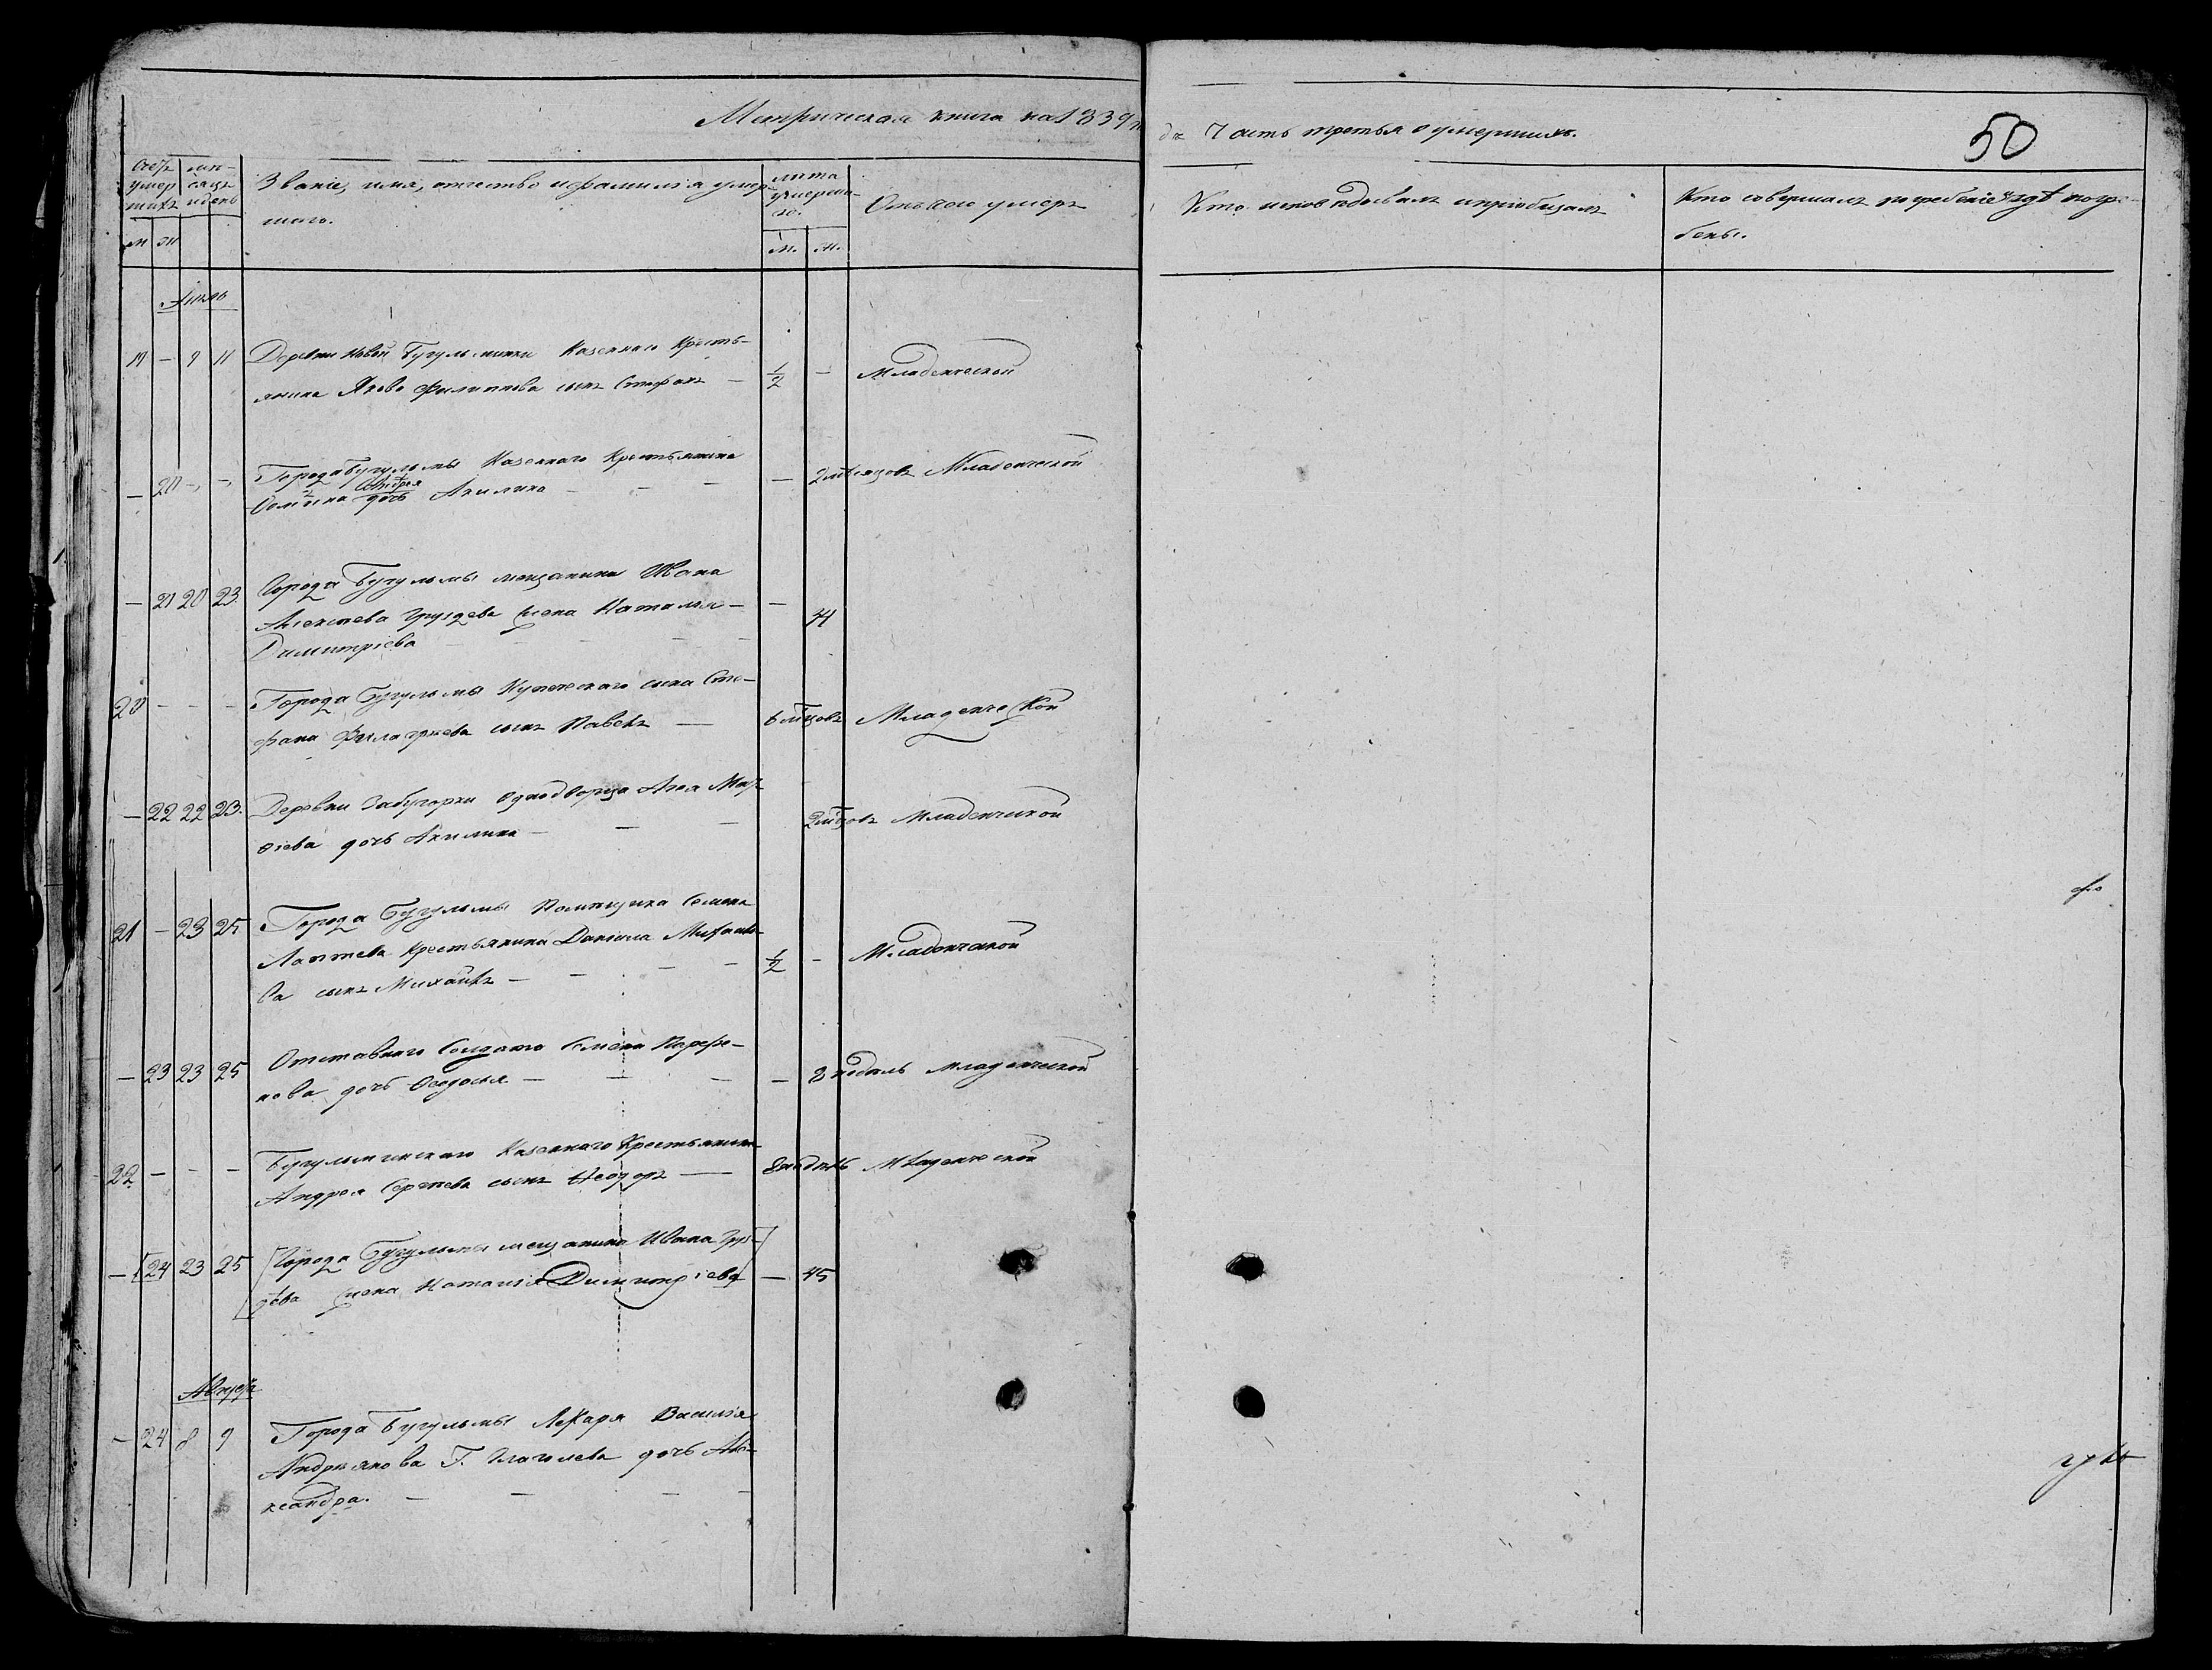 Метрическая книга на 1839 го
дъ Часть третья о умершихъ.
50
Счетъ умершихъ
мѣсяцъ и день
Званіе, имя, отчество и фамилія умер-
шаго.
лѣта умерша-
го.
Отъ чего умеръ
Кто исповѣдывалъ и пріобщалъ
Кто совершалъ погребеніе и гдѣ погре-
бены.
м ж
м. ж.
Іюль
19 — 9 11 Деревни Новой Бугульминки Казеннаго Кресть-
янина Якова Филиппова сынъ Стефанъ — 1/2 — Младенческой
— 20 — — Города Бугульмы Казеннаго Крестьянина
дочь Акилина — — — — 2 мѣсяцовъ Младенческой
— 21 20 23 Города Бугульмы мещанина Ивана
Алексѣева Груздева жена Наталья — — 44
Димитріева — — — —
20 — — — Города Бугульмы Купеческаго сына Сте-
фана сынъ Павелъ — 6 мцовъ Младенческой
— 22 22 23. Деревни Забугорки Однодворца Мат-
ѳіева дочь Акилина — — — 2 мцовъ Младенческой
21 — 23 25 Города Бугульмы Помѣщика Семена
Лаптева Крестьянина Даніила Михайло-
ва сынъ Михаилъ — — — — 1/2 — Младенческой
— 23 23 25 Отставнаго Солдата Семена Парфе-
нова дочь Ѳеодосья — — — — 8 недѣль младенческой
22 — — — Бугульминскаго Казеннаго Крестьянина
Андрея Сергѣева сынъ Ѳеодоръ — 8 недѣль Младенческой
— [24 23 25 [Города Бугульмы мещанина Ивана Груз-]
дева жена Наталія Димитріева — 45
Августъ
— 24 8 9 Города Бугульмы Лекаря Василія
Андріянова Г. Глаголева дочь Але-
ксандра. — — — —